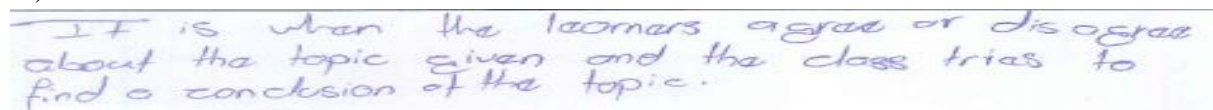 It is when the learners agree or disagree
about the topic given and the class tries to
find a conclusion of the topic.